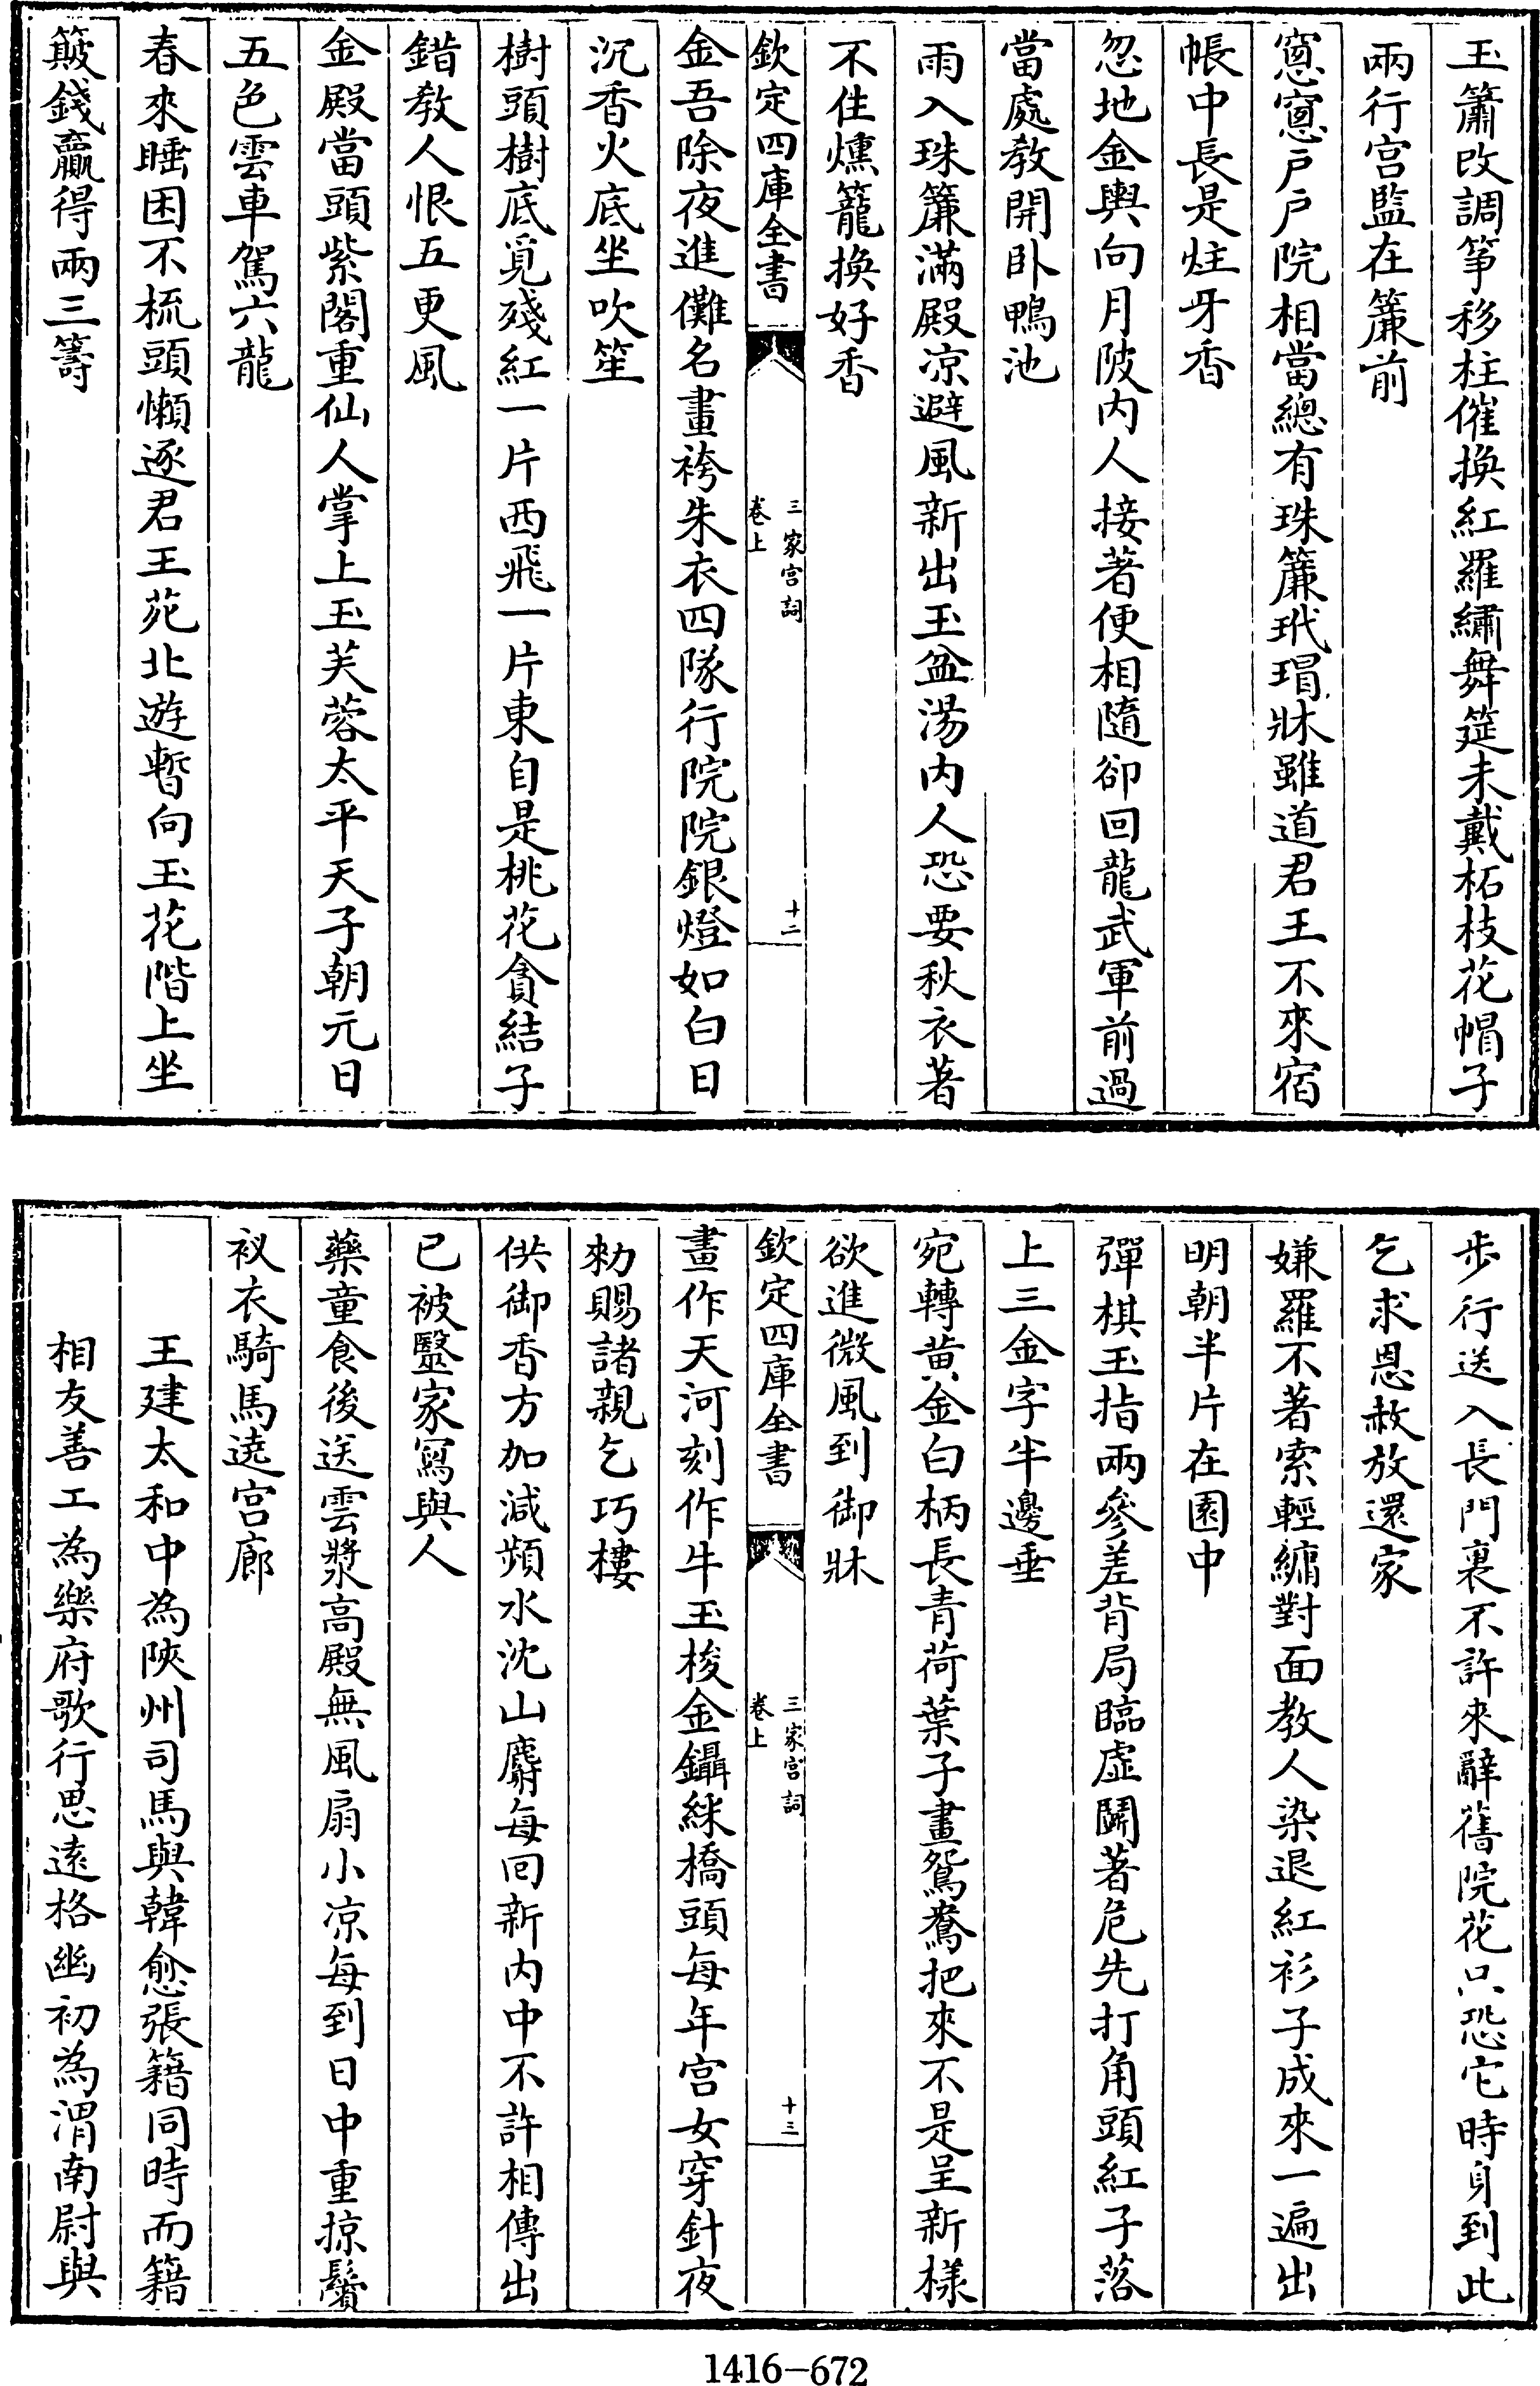 玉簫改調箏移柱催換紅羅繡舞筵未戴柘枝花帽子
兩行宫監在簾前
窻窻戸戸院相當總有珠簾玳瑁牀雖道君王不來宿
帳中長是炷牙香
忽地金輿向月陂内人接著便相隨卻回龍武軍前過
當處教開卧鴨池
雨入珠簾滿殿凉避風新出玉盆湯内人恐要秋衣著
不住燻籠換好香
欽定四庫全書
三家宫詞
卷上
十二
金吾除夜進儺名畫袴朱衣四隊行院院銀燈如白日
沉香火底坐吹笙
樹頭樹底覓殘紅一片西飛一片東自是桃花貪結子
錯教人恨五更風
金殿當頭紫閣重仙人掌上玉芙蓉太平天子朝元日
五色雲車駕六龍
春來睡困不梳頭懶逐君王苑北遊暫向玉花階上坐
簸錢贏得兩三籌
步行送入長門裏不許來辭舊院花只恐它時身到此
乞求恩赦放還家
嫌羅不著索輕繡對面教人染退紅衫子成來一遍出
明朝半片在園中
彈棋玉指兩參差背局臨虛鬬著危先打角頭紅子落
上三金字半邊垂
宛轉黄金白柄長青荷葉子畫鴛鴦把來不是呈新様
欲進微風到御牀
欽定四庫全書
三家宫詞
卷上
十三
畫作天河刻作牛玉梭金鑷綵橋頭每年宫女穿針夜
勑賜諸親乞巧樓
供御香方加減頻水沈山麝每回新内中不許相傳出
已被毉家寫與人
藥童食後送雲漿高殿無風扇小凉每到日中重掠鬢
衩衣騎馬遶宫廊
王建太和中為陝州司馬與韓愈張籍同時而籍
相友善工為樂府歌行思逺格幽初為渭南尉與
1416-672